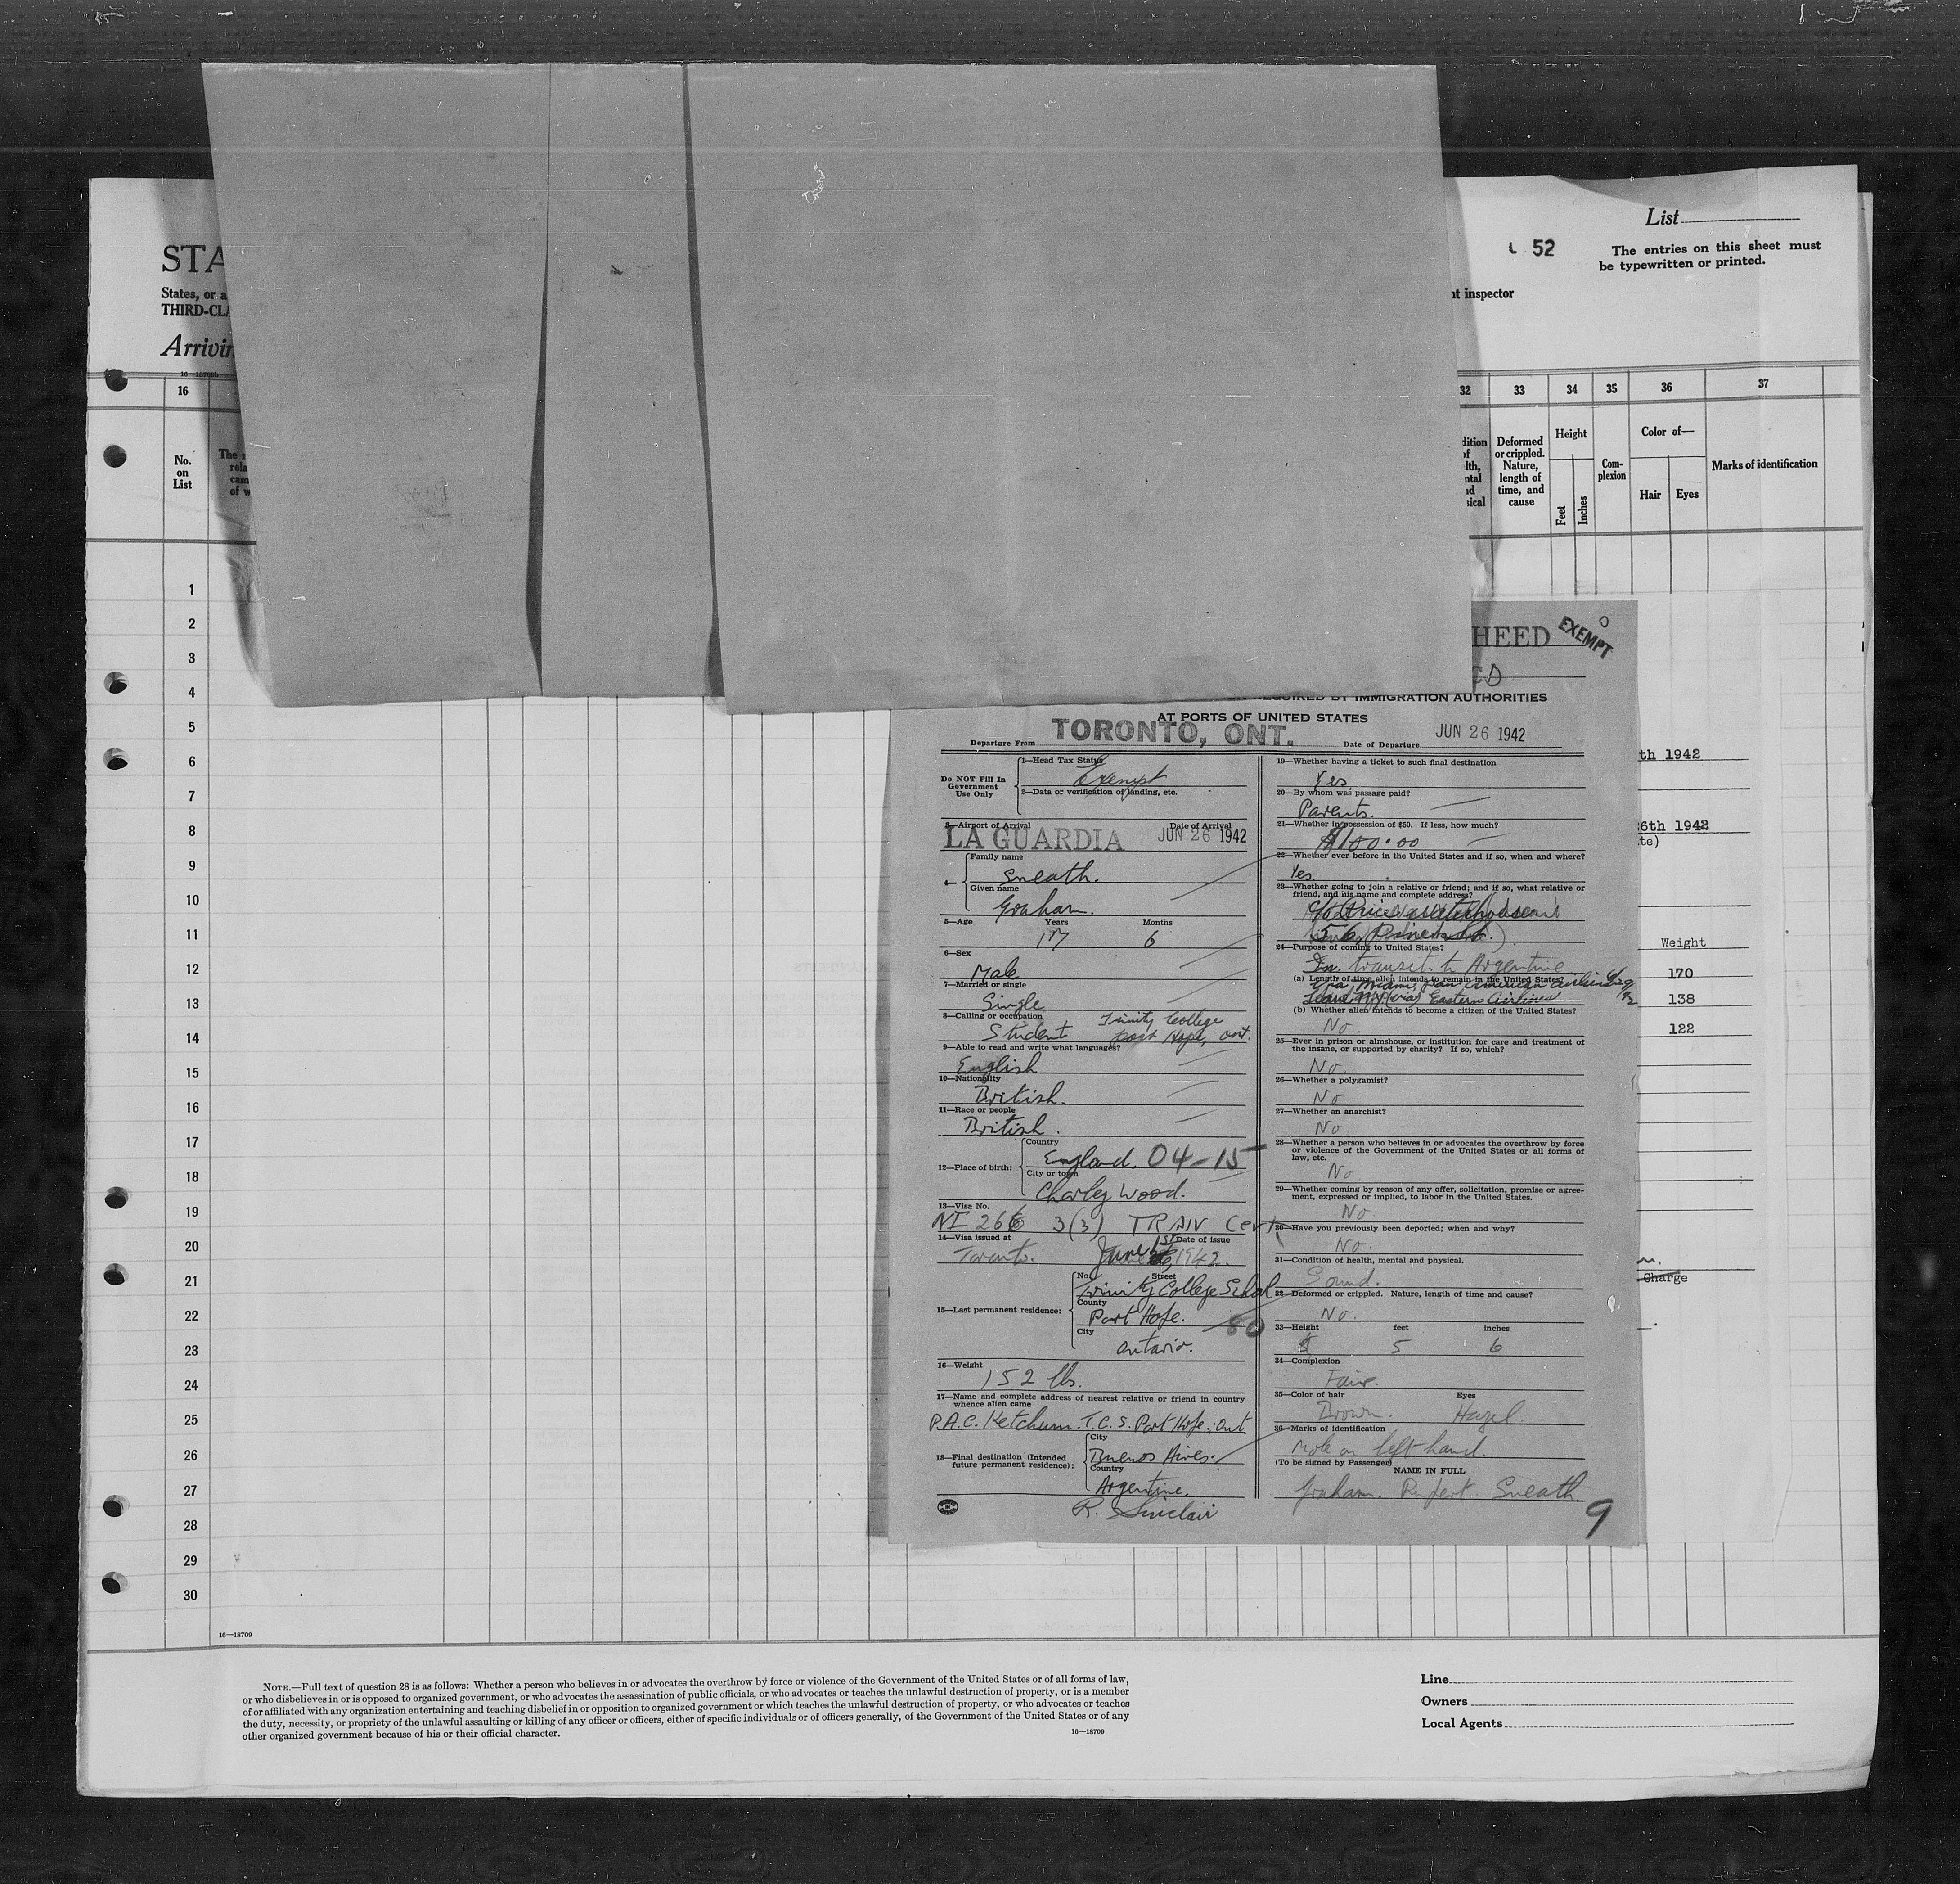 List
52
The entries on this sheet must
be typewritten or printed.
STA
States, or a
THIRD-CLA
nt inspector
Arrivin
16—18709b
16
32
33
34
35
36
37
No.
on
List
The
rela
cam
of w
dition
of
lth,
ntal
nd
sical
Deformed
or crippled.
Nature,
length of
time, and
cause
Height
Feet
Inches
Com-
plexion
Color of—
Hair
Eyes
Marks of identification
1
2
3
4
5
6
7
8
9
10
11
12
13
14
15
16
17
18
19
20
21
22
23
24
25
26
27
28
29
30
16—18709
HEED
EXEMPT
REQUIRED BY IMMIGRATION AUTHORITIES
AT PORTS OF UNITED STATES
Departure From TORONTO, ONT. Date of Departure JUN 26 1942
Do NOT Fill In
Government
Use Only
1—Head Tax Status
Exempt
2—Data or verification of landing, etc.
3—Airport of Arrival Date of Arrival
LA GUARDIA JUN 26 1942
4—
Family name
Sneath.
Given name
Graham.
5—Age Years Months
17 6
6—Sex
Male
7—Married or single
Single
8—Calling or occupation
Student Trinity College
Port Hope, Ont.
9—Able to read and write what languages?
English
10—Nationality
British.
11—Race or people
British.
12—Place of birth:
Country
England. 04-15
City or town
Chorley Wood.
13—Visa No.
NI 266 3(3) TRAN Cert.
14—Visa issued at Date of issue
Toronto. June 1st 1942.
15—Last permanent residence:
No. Street
Trinity College School
County
Port Hope. 60
City
Ontario.
16—Weight
152 lbs.
17—Name and complete address of nearest relative or friend in country
whence alien came
P.A.C. Ketchum. T.C.S. Port Hope. Ont.
18—Final destination (Intended
future permanent residence):
City
Buenos Aires.
Country
Argentine.
R. Sinclair
19—Whether having a ticket to such final destination
Yes
20—By whom was passage paid?
Parents.
21—Whether in possession of $50. If less, how much?
$100.00
22—Whether ever before in the United States and if so, when and where?
Yes.
23—Whether going to join a relative or friend; and if so, what relative or
friend, and his name and complete address?
c/o Price Waterhouse
56, Pine St.
24—Purpose of coming to United States?
In transit to Argentine
(a) Length of time alien intends to remain in the United States?
Via, Miami, Pan American Airlines
Leave N.Y. (via) Eastern Airlines
(b) Whether alien intends to become a citizen of the United States?
No.
25—Ever in prison or almshouse, or institution for care and treatment of
the insane, or supported by charity? If so, which?
No.
26—Whether a polygamist?
No
27—Whether an anarchist?
No
28—Whether a person who believes in or advocates the overthrow by force
or violence of the Government of the United States or all forms of
law, etc.
No
29—Whether coming by reason of any offer, solicitation, promise or agree-
ment, expressed or implied, to labor in the United States.
No.
30—Have you previously been deported; when and why?
No.
31—Condition of health, mental and physical.
Sound.
32—Deformed or crippled. Nature, length of time and cause?
No.
33—Height feet inches
5 6
34—Complexion
Fair.
35—Color of hair Eyes
Brown. Hazel.
36—Marks of identification
Mole on left hand.
(To be signed by Passenger)
NAME IN FULL
Graham. Rupert. Sneath
9
th 1942
26th 1942
te)
Weight
170
138
122
Charge
NOTE.—Full text of question 28 is as follows: Whether a person who believes in or advocates the overthrow by force or violence of the Government of the United States or of all forms of law,
or who disbelieves in or is opposed to organized government, or who advocates the assassination of public officials, or who advocates or teaches the unlawful destruction of property, or is a member
of or affiliated with any organization entertaining and teaching disbelief in or opposition to organized government or which teaches the unlawful destruction of property, or who advocates or teaches
the duty, necessity, or propriety of the unlawful assaulting or killing of any officer or officers, either of specific individuals or of officers generally, of the Government of the United States or of any
other organized government because of his or their official character.
16—18709
Line
Owners
Local Agents